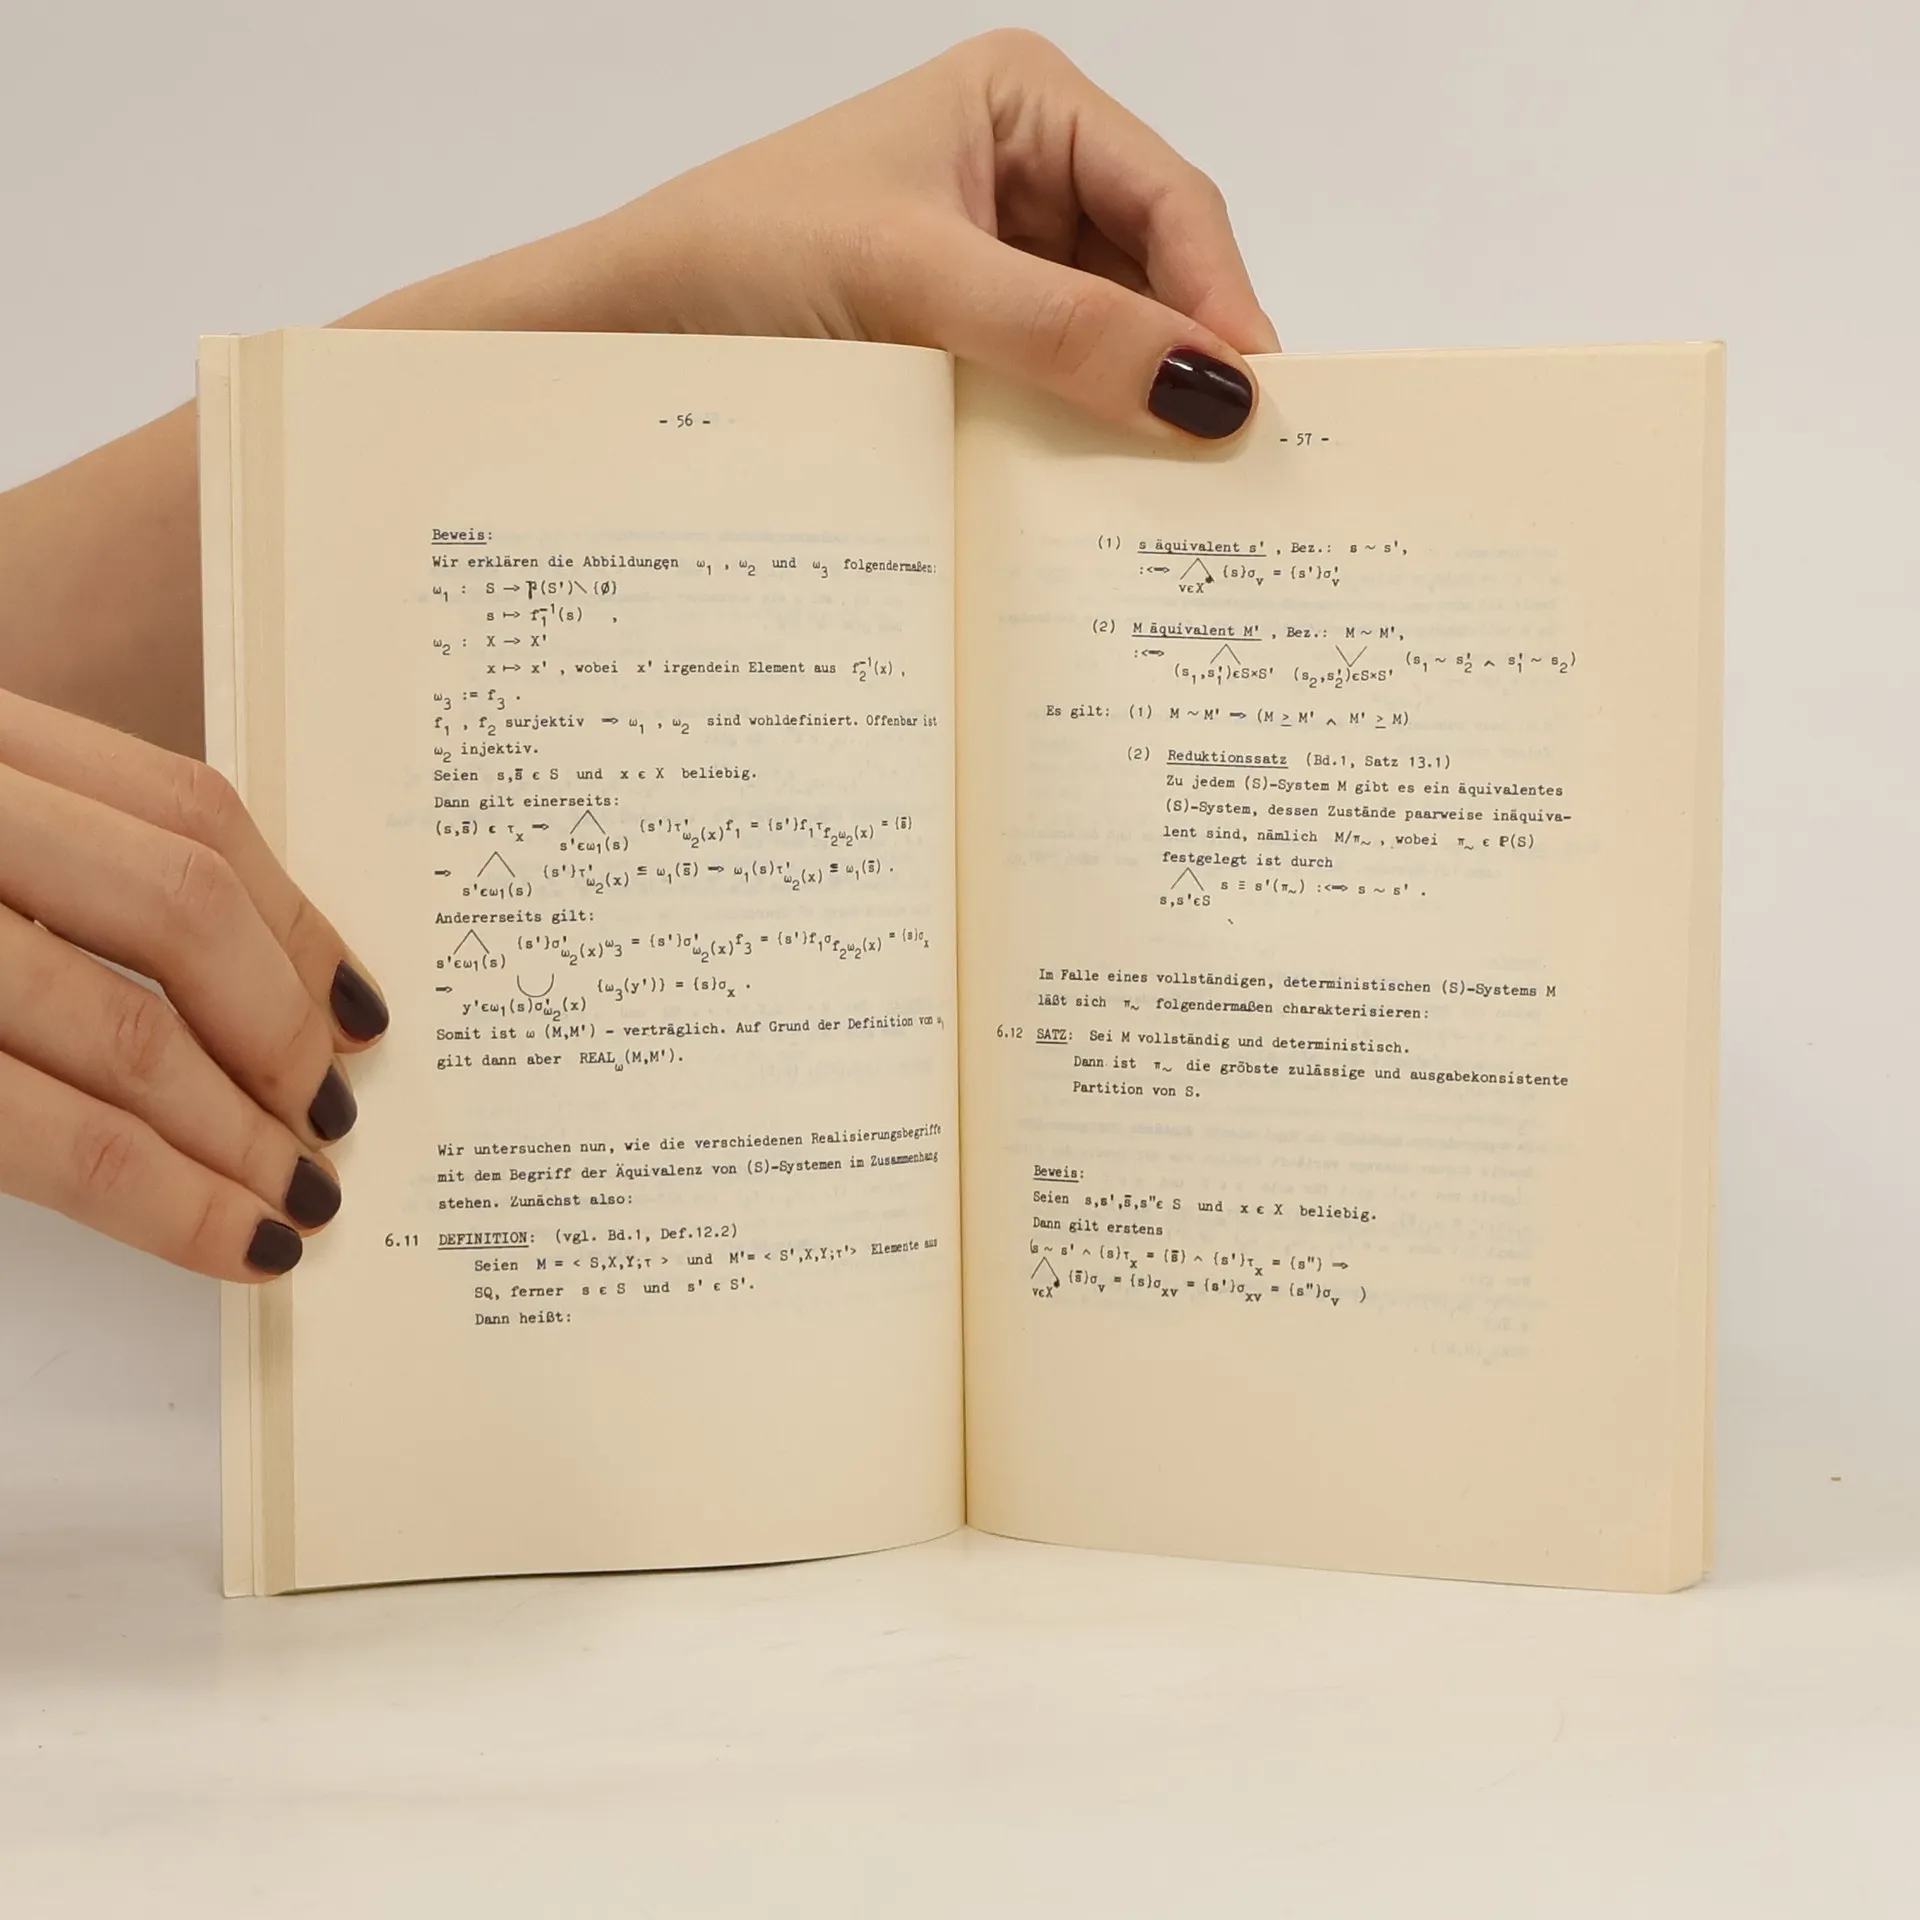 - 56 -
Beweis:
Wir erklären die Abbildungen ω₁ , ω₂ und ω₃ folgendermaßen:
ω₁ : S → 𝔓(S')\{∅}
s ↦ f₁⁻¹(s) ,
ω₂ : X → X'
x ↦ x' , wobei x' irgendein Element aus f₂⁻¹(x) ,
ω₃ := f₃ .
f₁ , f₂ surjektiv ⇒ ω₁ , ω₂ sind wohldefiniert. Offenbar ist
ω₂ injektiv.
Seien s,s̄ ϵ S und x ϵ X beliebig.
Dann gilt einerseits:
(s,s̄) ϵ τ_x ⇒ ⋀_{s'ϵω₁(s)} {s'}τ'_{ω₂(x)}f₁ = {s'}f₁τ_{f₂ω₂(x)} = {s̄}
⇒ ⋀_{s'ϵω₁(s)} {s'}τ'_{ω₂(x)} ≦ ω₁(s̄) ⇒ ω₁(s)τ'_{ω₂(x)} ≦ ω₁(s̄) .
Andererseits gilt:
⋀_{s'ϵω₁(s)} {s'}σ'_{ω₂(x)}ω₃ = {s'}σ'_{ω₂(x)}f₃ = {s'}f₁σ_{f₂ω₂(x)} = {s}σ_x
⇒ ⋃_{y'ϵω₁(s)σ'_{ω₂(x)}} {ω₃(y')} = {s}σ_x .
Somit ist ω (M,M') - verträglich. Auf Grund der Definition von ω₁
gilt dann aber REAL_ω(M,M').
Wir untersuchen nun, wie die verschiedenen Realisierungsbegriffe
mit dem Begriff der Äquivalenz von (S)-Systemen im Zusammenhang
stehen. Zunächst also:
6.11 DEFINITION: (vgl. Bd.1, Def.12.2)
Seien M = < S,X,Y;τ > und M'= < S',X,Y;τ'> Elemente aus
SQ, ferner s ϵ S und s' ϵ S'.
Dann heißt:
- 57 -
(1) s äquivalent s' , Bez.: s ~ s',
:⇔ ⋀_{vϵX*} {s}σ_v = {s'}σ'_v
(2) M äquivalent M' , Bez.: M ~ M',
:⇔ ⋀_{(s₁,s₁')ϵS×S'} ⋁_{(s₂,s₂')ϵS×S'} (s₁ ~ s₂' ∧ s₁' ~ s₂)
Es gilt: (1) M ~ M' ⇒ (M ≥ M' ∧ M' ≥ M)
(2) Reduktionssatz (Bd.1, Satz 13.1)
Zu jedem (S)-System M gibt es ein äquivalentes
(S)-System, dessen Zustände paarweise inäquiva-
lent sind, nämlich M/π_~ , wobei π_~ ϵ ℙ(S)
festgelegt ist durch
⋀_{s,s'ϵS} s ≡ s'(π_~) :⇔ s ~ s' .
Im Falle eines vollständigen, deterministischen (S)-Systems M
läßt sich π_~ folgendermaßen charakterisieren:
6.12 SATZ: Sei M vollständig und deterministisch.
Dann ist π_~ die gröbste zulässige und ausgabekonsistente
Partition von S.
Beweis:
Seien s,s',s̄,s"ϵ S und x ϵ X beliebig.
Dann gilt erstens
(s ~ s' ∧ {s}τ_x = {s̄} ∧ {s'}τ_x = {s"} ⇒
⋀_{vϵX*} {s̄}σ_v = {s}σ_{xv} = {s'}σ_{xv} = {s"}σ_v )